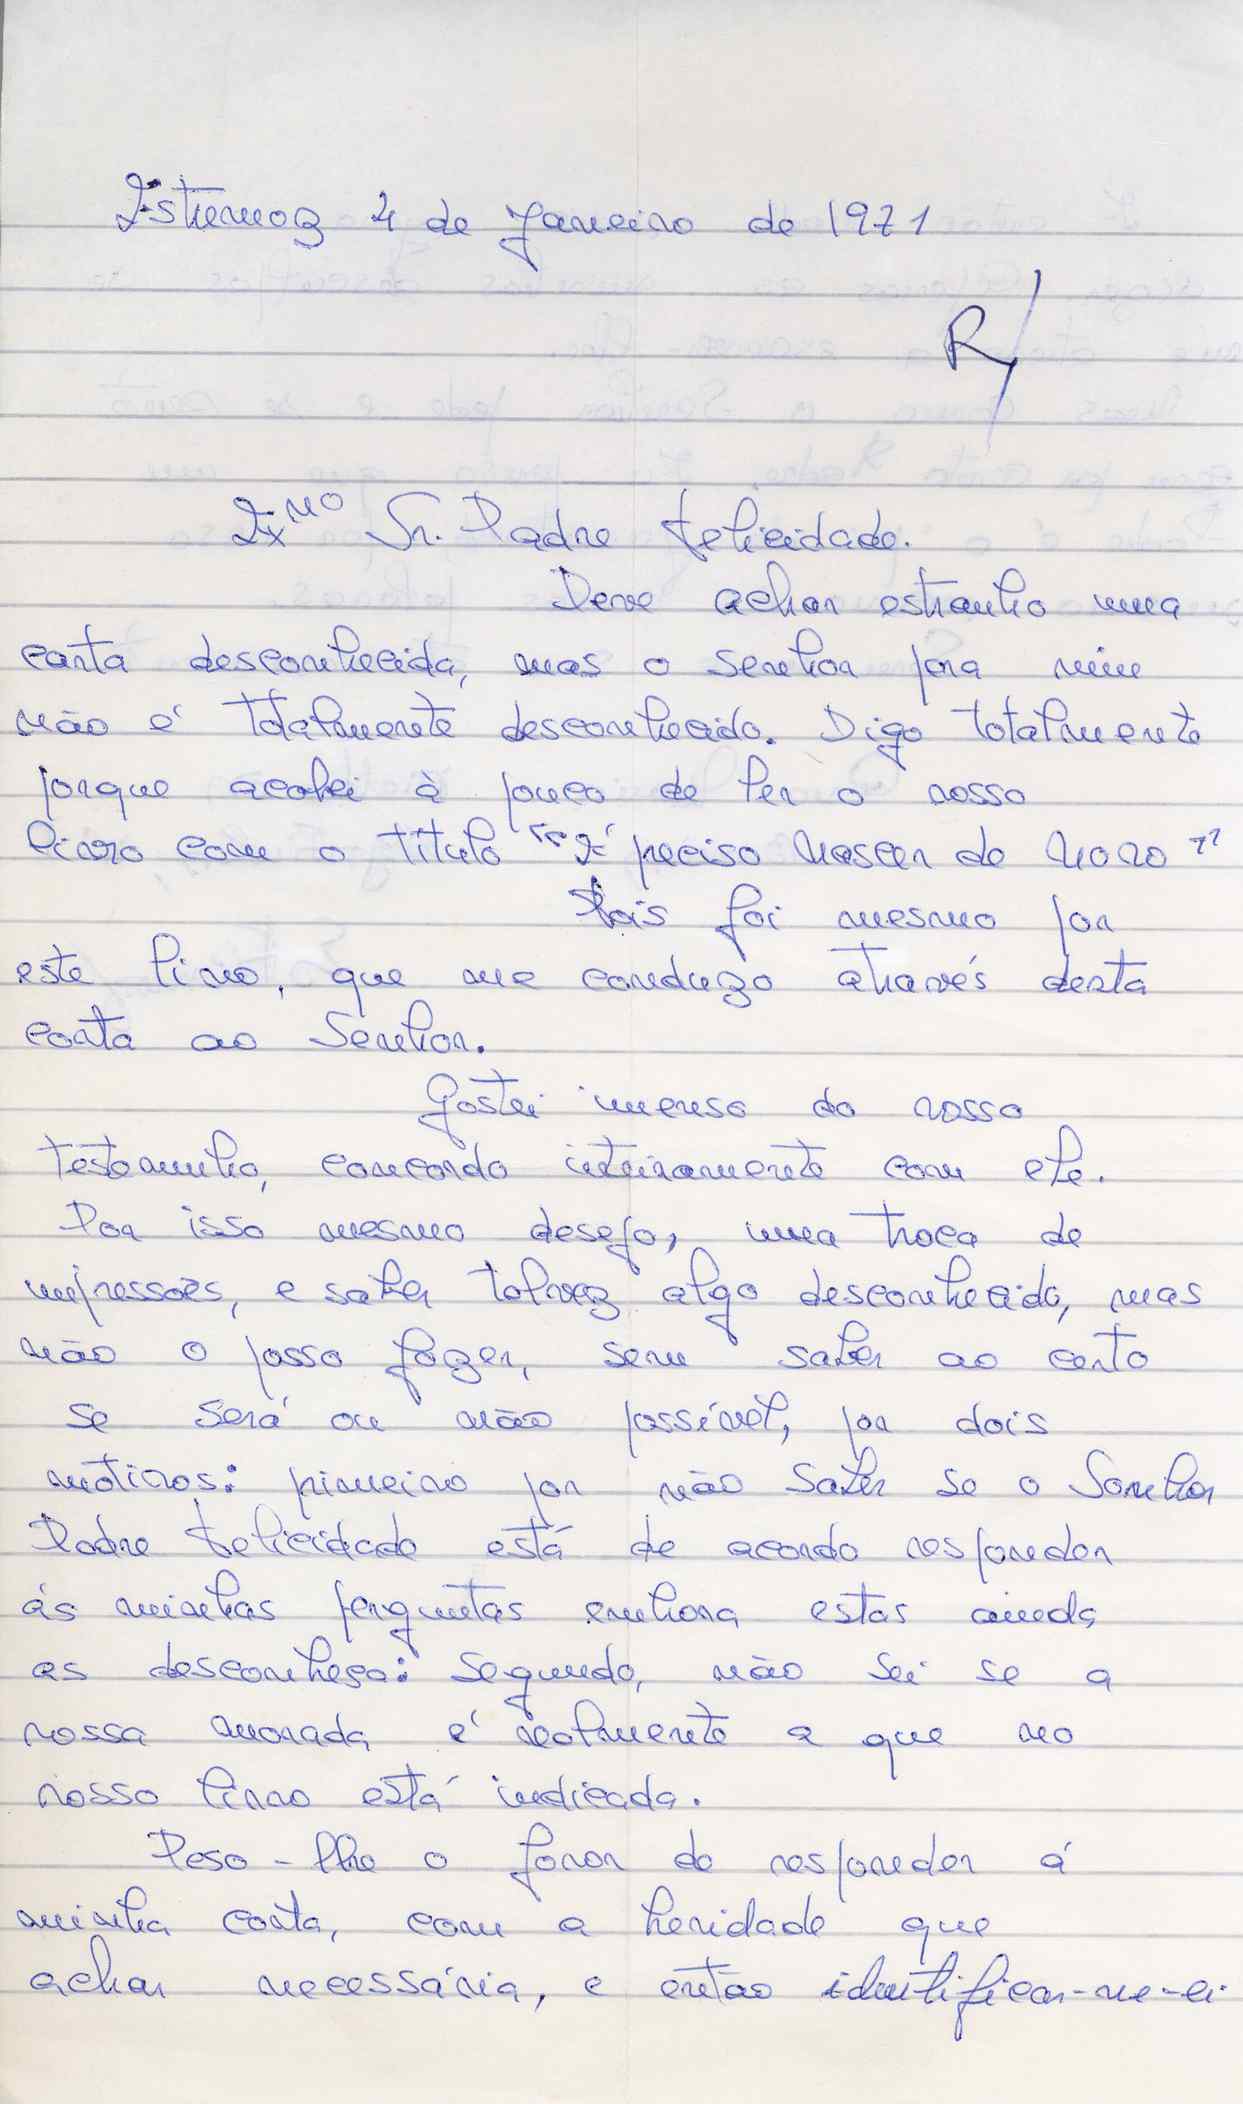 Estremoz 4 de Janeiro de 1971
R/
Ex.mo Sr. Padre Felicidade.
Deve achar estranho uma
carta desconhecida, mas o senhor pra mim
não é totalmente desconhecido. Digo totalmente
porque acabei à pouco de ler o vosso
livro com o título "É preciso Nascer de Novo"
Pois foi mesmo por
este livro, que me conduzo através desta
carta ao Senhor.
Gostei imenso do vosso
testemunho, concordo inteiramente com ele.
Por isso mesmo desejo, uma troca de
impressões, e saber talvez algo desconhecido, mas
não o posso fazer, sem saber ao certo
se será ou não possível, por dois
motivos: primeiro por não saber se o Senhor
Padre Felicidade está de acordo responder
ás minhas perguntas embora estas ainda
as desconheça: Segundo, não sei se a
vossa morada é realmente a que no
vosso livro está indicada.
Peso-lhe o favor de responder á
minha carta, com a beridade que
achar necessária, e então identificar-me-ei